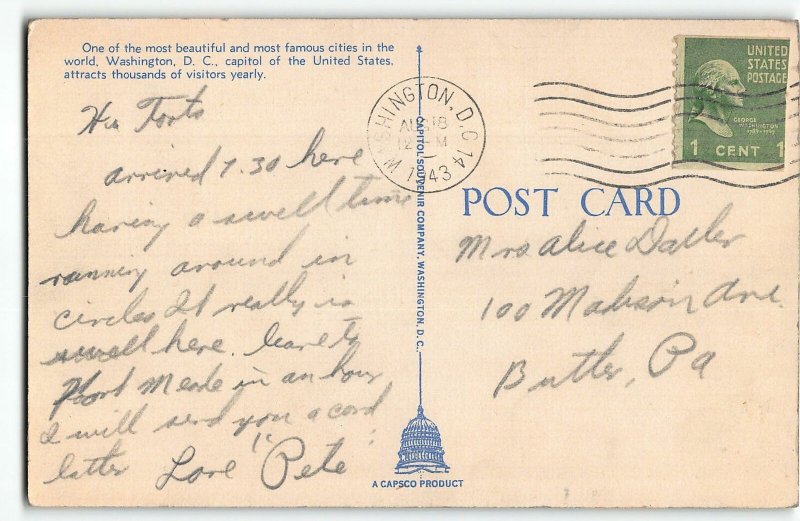 One of the most beautiful and most famous cities in the
world, Washington, D. C., capitol of the United States,
attracts thousands of visitors yearly.
Hia Toots
arrived 7.30 here
having a swell time
running around in
circles It really is
swell here. leave to
Meade in an hour
I will send you a card
latter Love "Pete"
CAPITOL SOUVENIR COMPANY, WASHINGTON, D. C.
A CAPSCO PRODUCT
WASHINGTON, D.C. 14
AUG 18
12 M
1943
UNITED
STATES
POSTAGE
GEORGE
WASHINGTON
1789-1797
1 CENT 1
POST CARD
Mrs. Alice
100 Madison Ave.
Butler, Pa